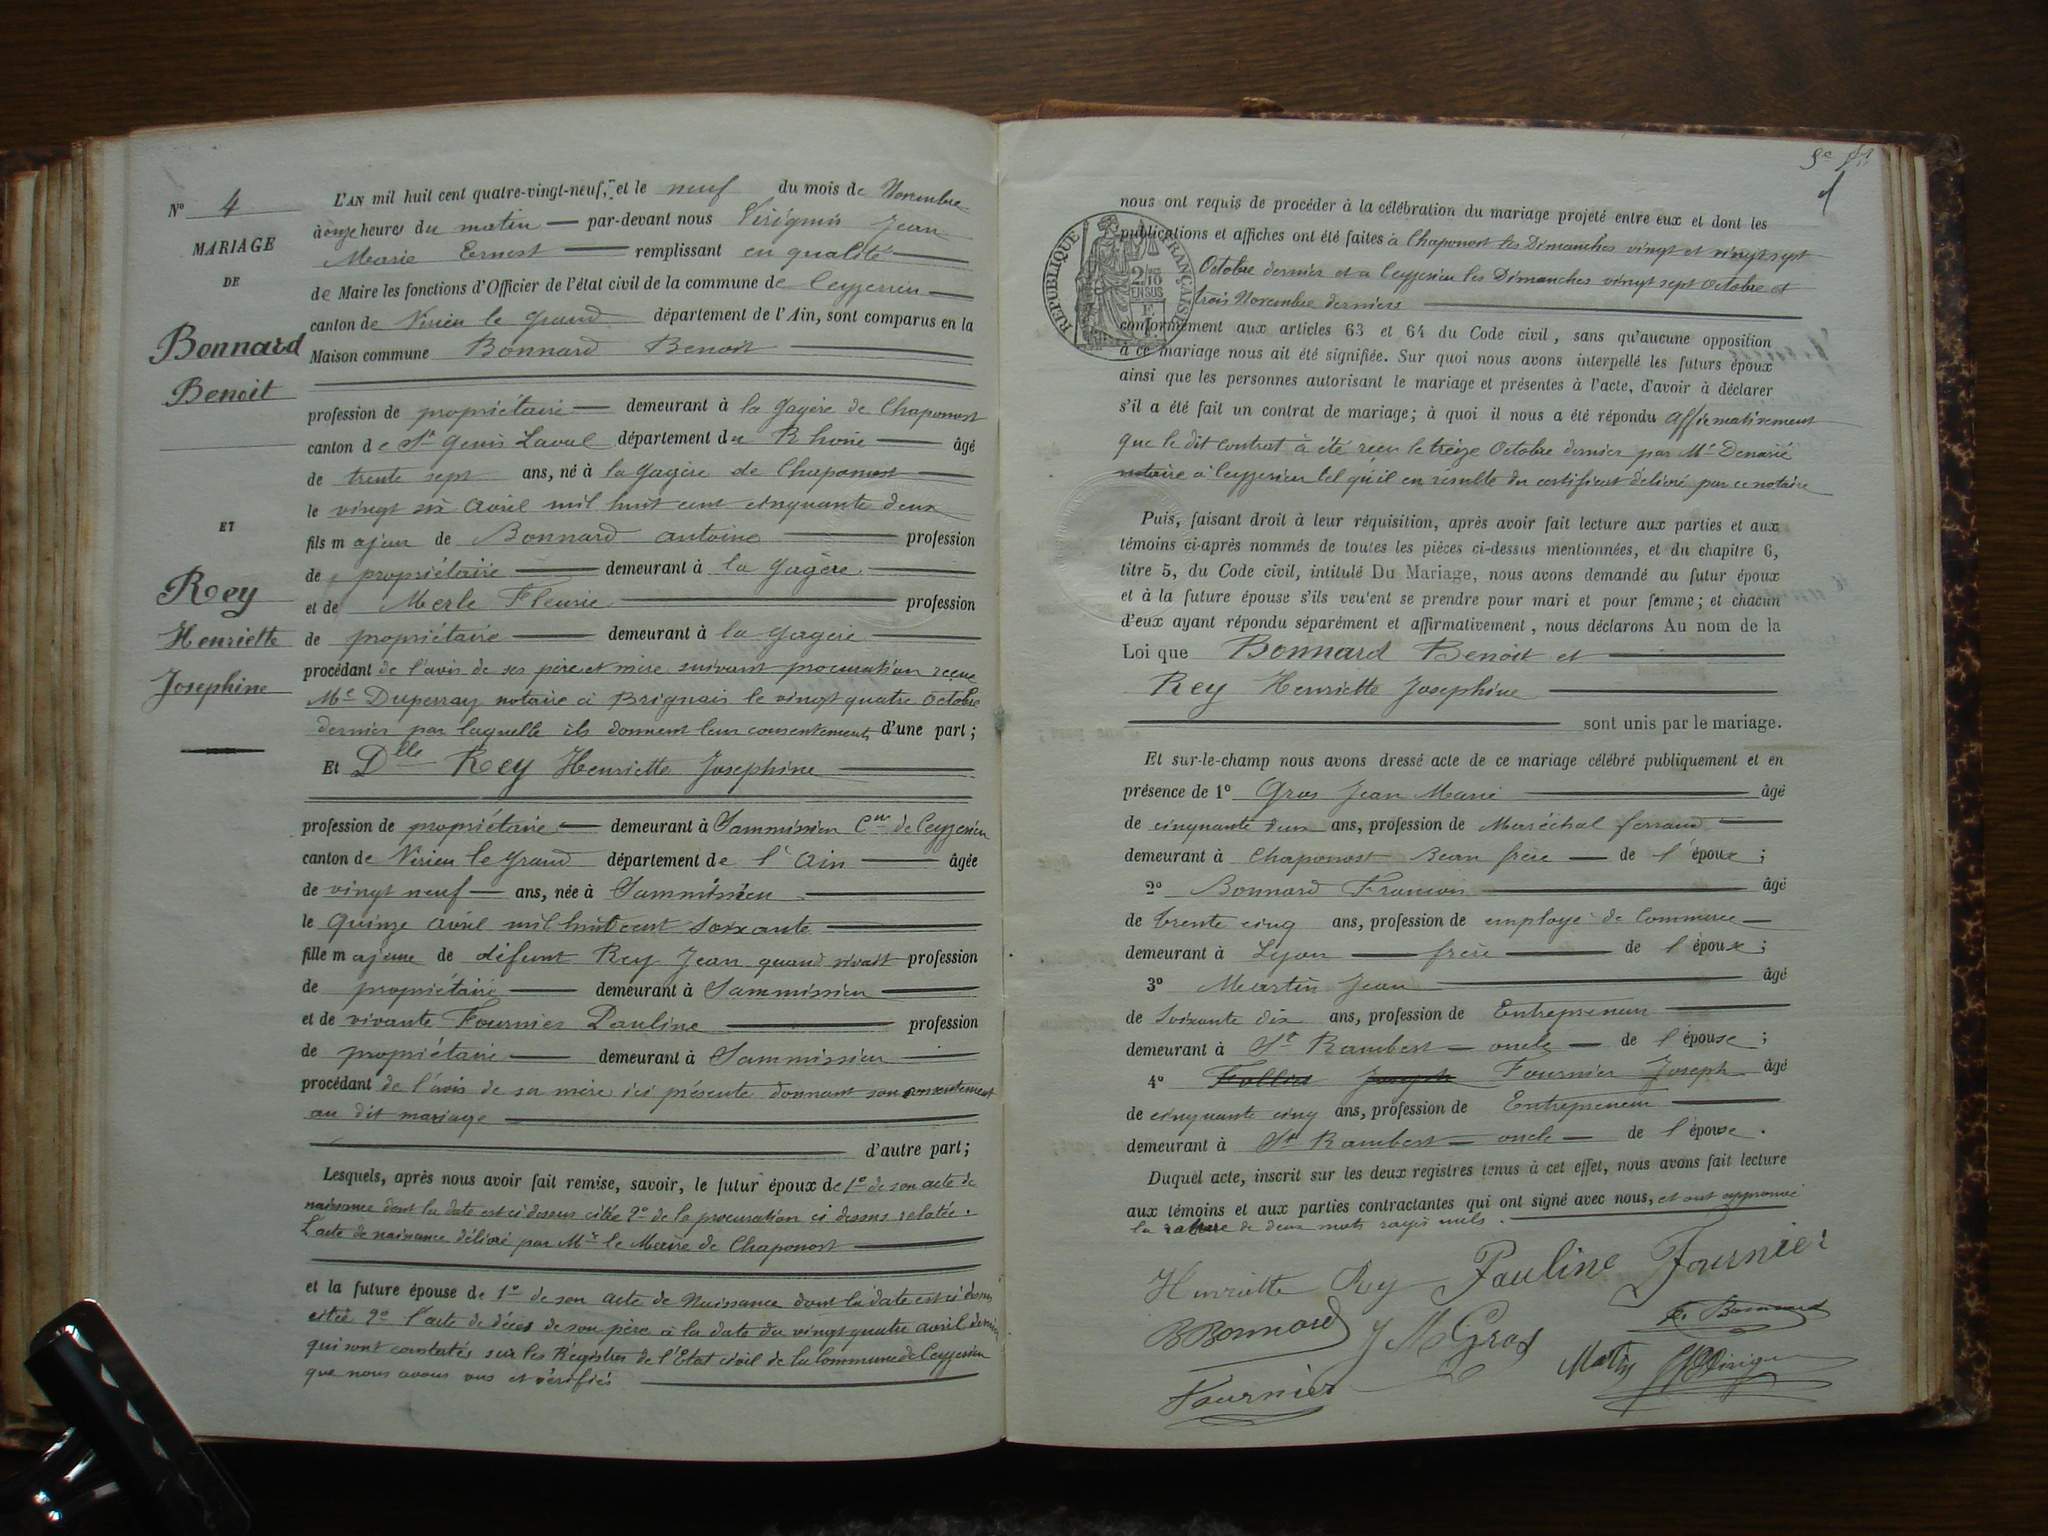 N° 4
MARIAGE
DE
Bonnard
Benoit
ET
Rey
Henriette
Josephine
L'AN mil huit cent quatre-vingt-neuf, et le neuf du mois de Novembre
à onze heures du matin par-devant nous Jean
Marie Ernest remplissant en qualité
de Maire les fonctions d'Officier de l'état civil de la commune de Ceyzerieu
canton de Virieu le Grand département de l'Ain, sont comparus en la
Maison commune Bonnard Benoit
profession de propriétaire demeurant à la Gagère de Chaponost
canton de St Genis Laval département du Rhône âgé
de trente sept ans, né à la Gagère de Chaponost
le vingt six avril mil huit cent cinquante deux
fils majeur de Bonnard antoine profession
de propriétaire demeurant à la Gagère
et de Merle Fleurie profession
de propriétaire demeurant à la Gagère
procédant de l'avis de ses père et mère suivant procuration reçue
Me Duperray notaire à Brignais le vingt quatre Octobre
dernier par laquelle ils donnent leur consentement d'une part;
Et Dlle Rey Henriette Josephine
profession de propriétaire demeurant à Sammissieu Cne de Ceyzerieu
canton de Virieu le Grand département de l'Ain âgée
de vingt neuf ans, née à Sammissieu
le Quinze avril mil huit cent soixante
fille majeure de défunt Rey Jean quand vivait profession
de propriétaire demeurant à Sammissieu
et de vivante Fournier Pauline profession
de propriétaire demeurant à Sammissieu
procédant de l'avis de sa mère ici présente donnant son consentement
au dit mariage
d'autre part;
Lesquels, après nous avoir fait remise, savoir, le futur époux de 1° de son acte de
naissance dont la date est ci dessus citée 2° de la procuration ci dessus relatée.
L'acte de naissance délivré par Mr le Maire de Chaponost
et la future épouse de 1° de son acte de Naissance dont la date est ci dessus
citée 2° l'acte de décès de son père à la date du vingt quatre avril dernier
qui sont constatés sur les Registres de l'Etat civil de la Commune de Ceyzerieu
que nous avons vus et vérifiés
nous ont requis de procéder à la célébration du mariage projeté entre eux et dont les
publications et affiches ont été faites à Chaponost les Dimanches vingt et vingt sept
Octobre dernier et à Ceyzerieu les Dimanches vingt sept Octobre et
trois Novembre derniers
RÉPUBLIQUE FRANÇAISE
conformément aux articles 63 et 64 du Code civil, sans qu'aucune opposition
à ce mariage nous ait été signifiée. Sur quoi nous avons interpellé les futurs époux
ainsi que les personnes autorisant le mariage et présentes à l'acte, d'avoir à déclarer
s'il a été fait un contrat de mariage; à quoi il nous a été répondu Affirmativement
que le dit contrat à été reçu le treize Octobre dernier par Me Denarié
notaire à Ceyzerieu tel qu'il en résulte du certificat délivré par ce notaire
Puis, faisant droit à leur réquisition, après avoir fait lecture aux parties et aux
témoins ci-après nommés de toutes les pièces ci-dessus mentionnées, et du chapitre 6,
titre 5, du Code civil, intitulé Du Mariage, nous avons demandé au futur époux
et à la future épouse s'ils veulent se prendre pour mari et pour femme; et chacun
d'eux ayant répondu séparément et affirmativement, nous déclarons Au nom de la
Loi que Bonnard Benoit et
Rey Henriette Josephine
sont unis par le mariage.
Et sur-le-champ nous avons dressé acte de ce mariage célébré publiquement et en
présence de 1° Gros Jean Marie âgé
de cinquante deux ans, profession de Maréchal ferrand
demeurant à Chaponost Beau frère de l'époux;
2° Bonnard François âgé
de trente cinq ans, profession de employé de Commerce
demeurant à Lyon frère de l'époux;
3° Martin Jean âgé
de Soixante dix ans, profession de Entrepreneur
demeurant à St Rambert oncle de l'épouse;
4° Joseph Fournier Joseph âgé
de cinquante cinq ans, profession de Entrepreneur
demeurant à St Rambert oncle de l'épouse.
Duquel acte, inscrit sur les deux registres tenus à cet effet, nous avons fait lecture
aux témoins et aux parties contractantes qui ont signé avec nous, et ont approuvé
la rature de deux mots rayés nuls.
Henriette Rey Pauline Fournier
B Bonnard J M Gros Fr Bonnard
Fournier Martin